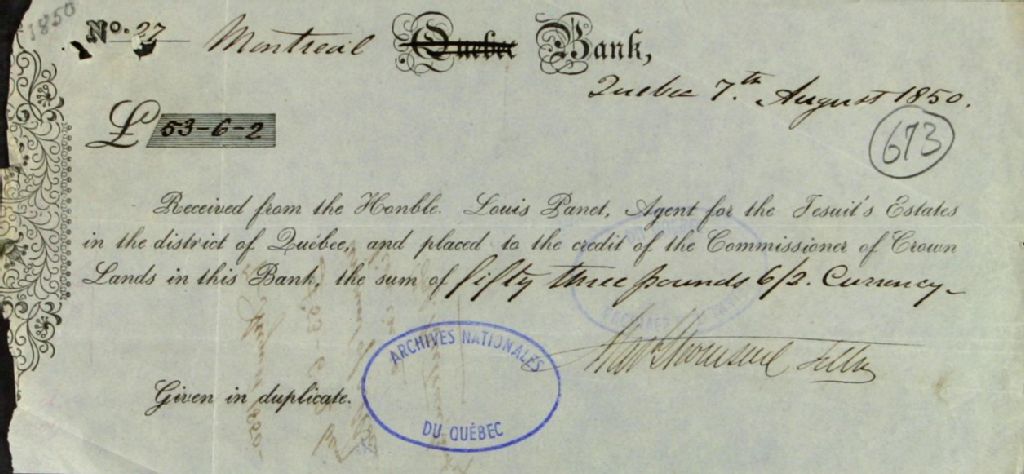 1850
No. 27 Montreal Quebec Bank,
Quebec 7th August 1850.
£ 53-6-2
673
Received from the Honble. Louis Panet, Agent for the Jesuit's Estates
in the district of Québec, and placed to the credit of the Commissioner of Crown
Lands in this Bank, the sum of fifty three pounds 6/2. Currency
Given in duplicate.
ARCHIVES NATIONALES
DU QUÉBEC